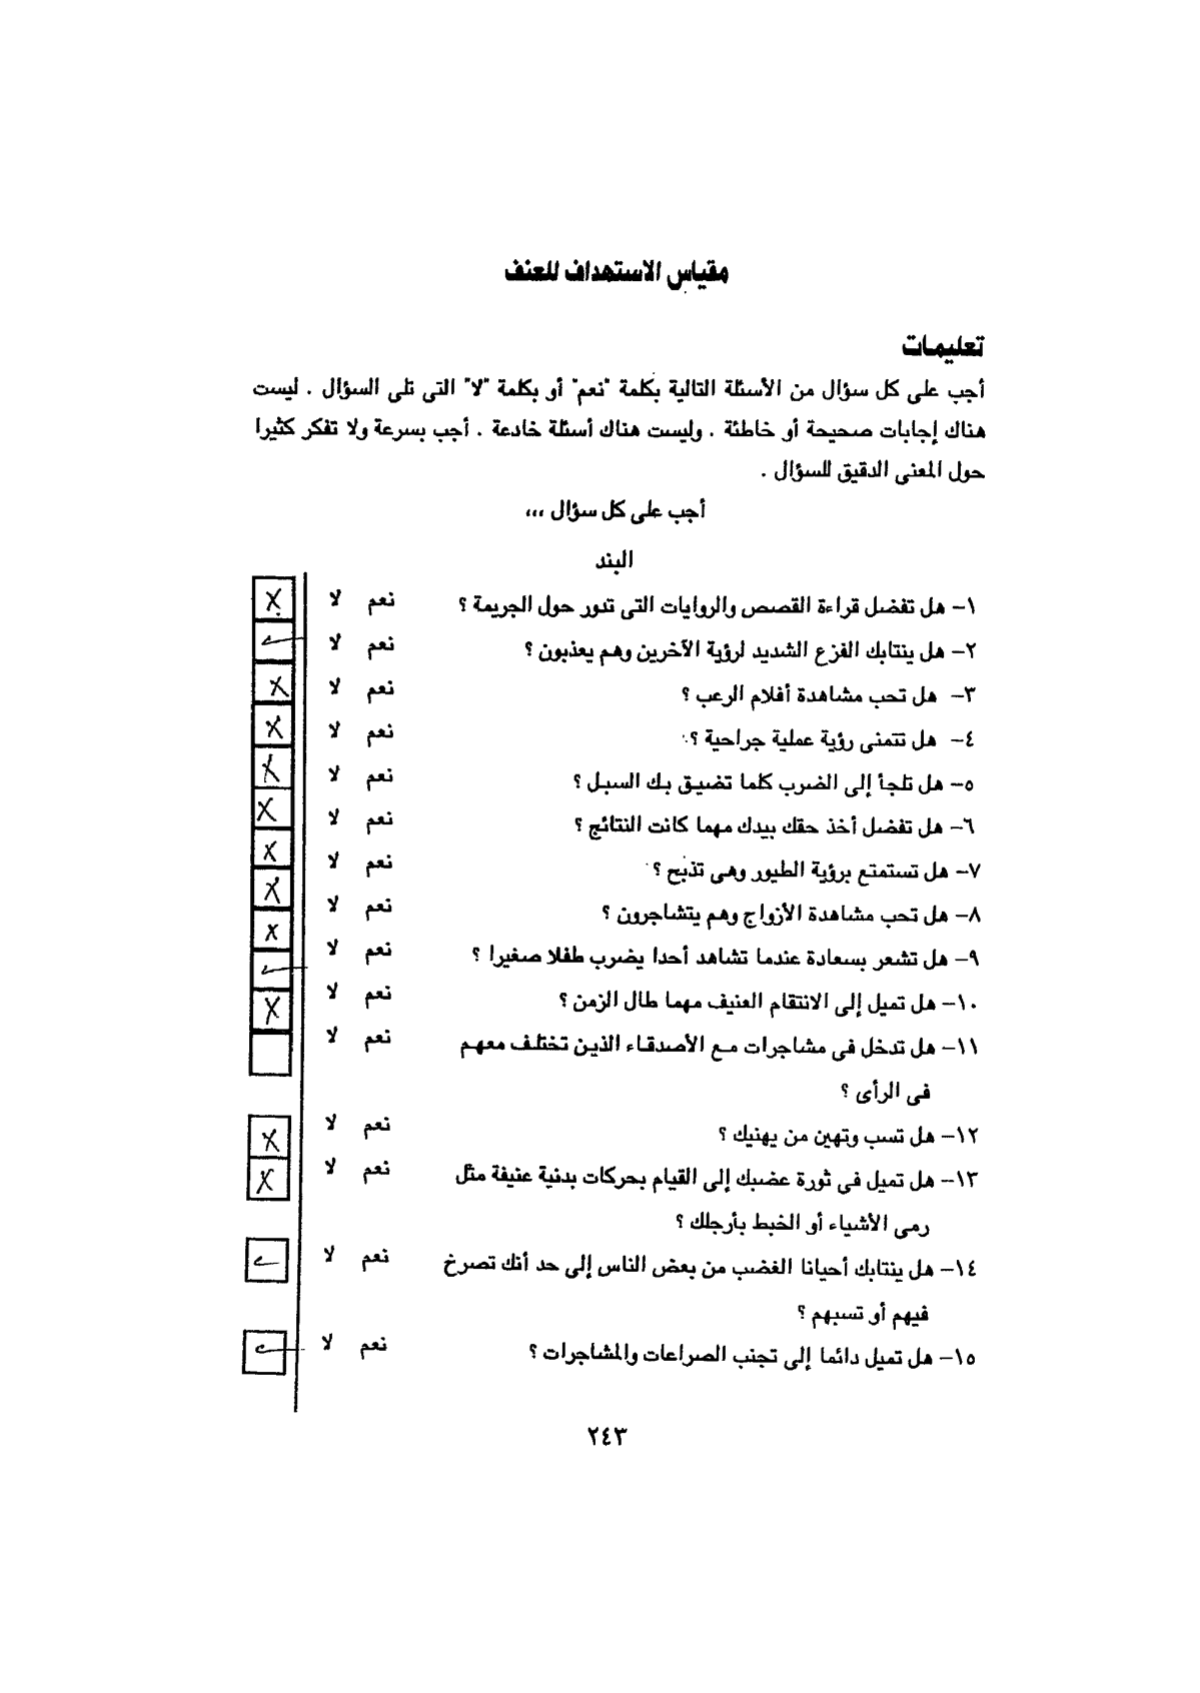 مقياس الاستهداف للعنف
تعليمات
أجب على كل سؤال من الأسئلة التالية بكلمة "نعم" أو بكلمة "لا" التى تلى السؤال . ليست
هناك إجابات صحيحة أو خاطئة . وليست هناك أسئلة خادعة . أجب بسرعة ولا تفكر كثيرا
حول المعنى الدقيق للسؤال .
أجب على كل سؤال ،،،
البند
١- هل تفضل قراءة القصص والروايات التى تدور حول الجريمة ؟ نعم لا X
٢- هل ينتابك الفزع الشديد لرؤية الآخرين وهم يعذبون ؟ نعم لا
٣- هل تحب مشاهدة أفلام الرعب ؟ نعم لا X
٤- هل تتمنى رؤية عملية جراحية ؟ نعم لا X
٥- هل تلجأ إلى الضرب كلما تضيق بك السبل ؟ نعم لا X
٦- هل تفضل أخذ حقك بيدك مهما كانت النتائج ؟ نعم لا X
٧- هل تستمتع برؤية الطيور وهى تذبح ؟ نعم لا X
٨- هل تحب مشاهدة الأزواج وهم يتشاجرون ؟ نعم لا X
٩- هل تشعر بسعادة عندما تشاهد أحدا يضرب طفلا صغيرا ؟ نعم لا X
١٠- هل تميل إلى الانتقام العنيف مهما طال الزمن ؟ نعم لا
١١- هل تدخل فى مشاجرات مع الأصدقاء الذين تختلف معهم نعم لا X
فى الرأى ؟
١٢- هل تسب وتهين من يهنيك ؟ نعم لا X
١٣- هل تميل فى ثورة عضبك إلى القيام بحركات بدنية عنيفة مثل نعم لا X
رمى الأشياء أو الخبط بأرجلك ؟
١٤- هل ينتابك أحيانا الغضب من بعض الناس إلى حد أنك تصرخ نعم لا
فيهم أو تسبهم ؟
١٥- هل تميل دائما إلى تجنب الصراعات والمشاجرات ؟ نعم لا
٢٤٣